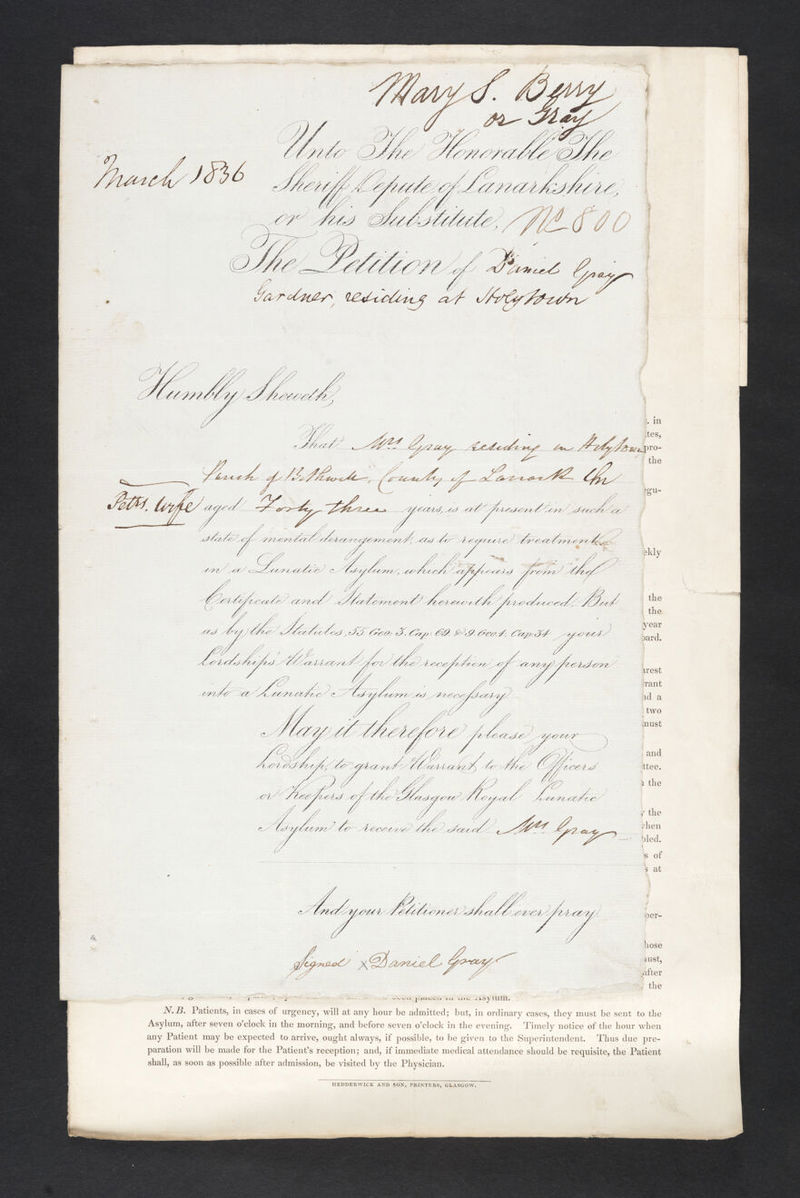 Mary S. Berry
or Gray
March 1836
Unto The Honorable The
Sheriff Depute of Lanarkshire,
or his Substitute, No 800
The Petition of Daniel Gray
Gardner, residing at Holytown
Humbly Sheweth,
That Mrs Gray residing in Holytown
Parish of Bothwell, County of Lanark
Petrs. Wife aged Forty three years, is at present in such a
state of mental derangement, as to require treatment
in a Lunatic Asylum, which appears from the
Certificate and Statement herewith produced. But
as by the Statutes, 55 Geo. 3. Cap. 69 & 9. Geo 4. Cap 34 your
Lordship's Warrant for the reception of any person
into a Lunatic Asylum is necessary
May it therefore please your
Lordship, to grant Warrant, to the Officers
or Keepers of the Glasgow Royal Lunatic
Asylum to receive the said Mrs Gray
And your Petitioner shall ever pray
Signed x Daniel Gray
. in
tes,
pro-
the
egu-
ekly
the
the
year
oard.
arest
rrant
nd a
two
must
and
ttee.
the
the
hen
bled.
s of
s at
per-
hose
ust,
after
the
Asylum.
N.B. Patients, in cases of urgency, will at any hour be admitted; but, in ordinary cases, they must be sent to the
Asylum, after seven o'clock in the morning, and before seven o'clock in the evening. Timely notice of the hour when
any Patient may be expected to arrive, ought always, if possible, to be given to the Superintendent. Thus due pre-
paration will be made for the Patient's reception; and, if immediate medical attendance should be requisite, the Patient
shall, as soon as possible after admission, be visited by the Physician.
HEDDERWICK AND SON, PRINTERS, GLASGOW.